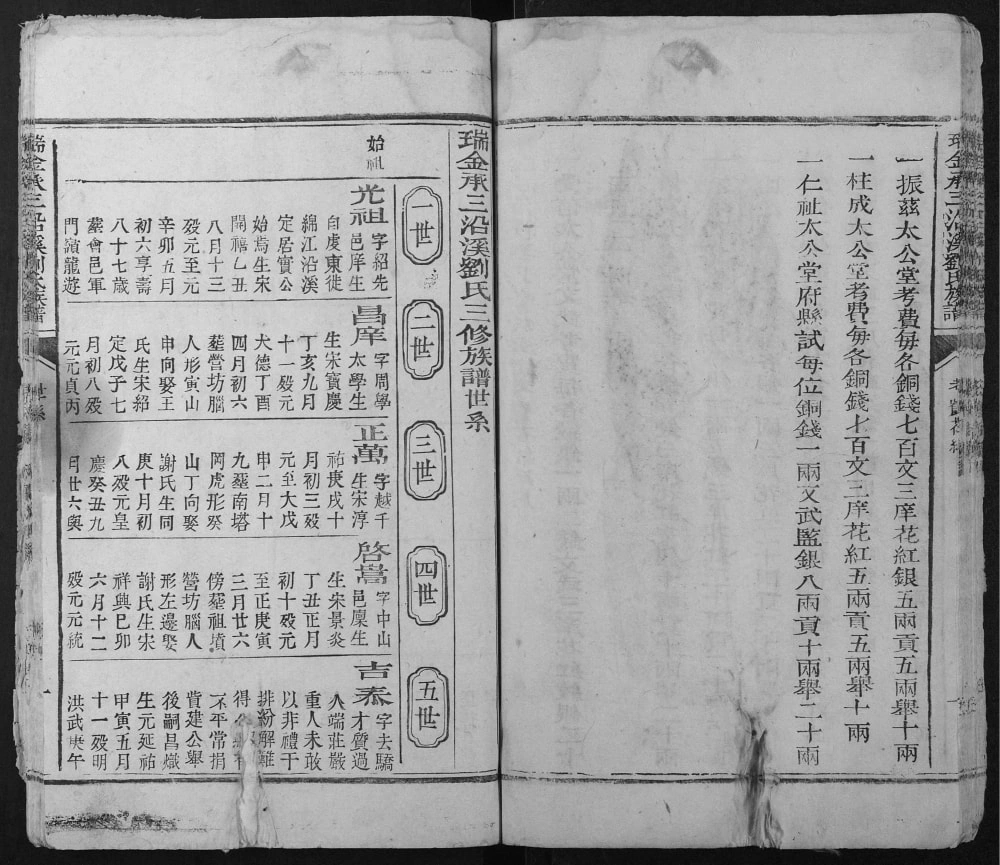 瑞金承三沿溪劉氏族譜
一振茲太公堂考費每名銅錢七百文三庠花紅銀五兩貢五兩舉十兩
一柱成太公堂考費每各銅錢七百文三庠花紅五兩貢五兩舉十兩
一仁祉太公堂府縣試每位銅錢一兩文武監銀八兩貢十兩舉二十兩
瑞金承三沿溪劉氏三修族譜世系
一世
二世
三世
四世
五世
始祖
光祖字紹先
邑庠生
自虔東徙
綿江沿溪
定居實公
始焉生宋
開禧乙丑
八月十三
殁至元元
辛卯五月
初六享壽
八十七歲
𦵏會邑軍
門嶺龍遊
昌庠字周學
太學生
生宋寶慶
丁亥九月
十一殁元
大德丁酉
四月初六
𦵏營坊腦
人形寅山
申向娶王
氏生宋紹
定戊子七
月初八殁
元元貞丙
正萬字越千
生宋淳
祐庚戌十
月初三殁
元至大戊
申二月十
九𦵏南塔
岡虎形癸
山丁向娶
謝氏生同
庚十月初
八殁元皇
慶癸丑九
月廿六與
啓嵩字中山
邑廩生
生宋景炎
丁丑正月
初十殁元
至正庚寅
三月廿六
傍𦵏祖墳
營坊腦人
形左邊娶
謝氏生宋
祥興己卯
六月十二
殁元元統
吉泰字去驕
才質過
人端莊嚴
重人未敢
以非禮干
排紛解難
得
不平常捐
貲建公舉
後嗣昌熾
生元延祐
甲寅五月
十一殁明
洪武庚午
瑞金承三沿溪劉氏族譜
世系
一